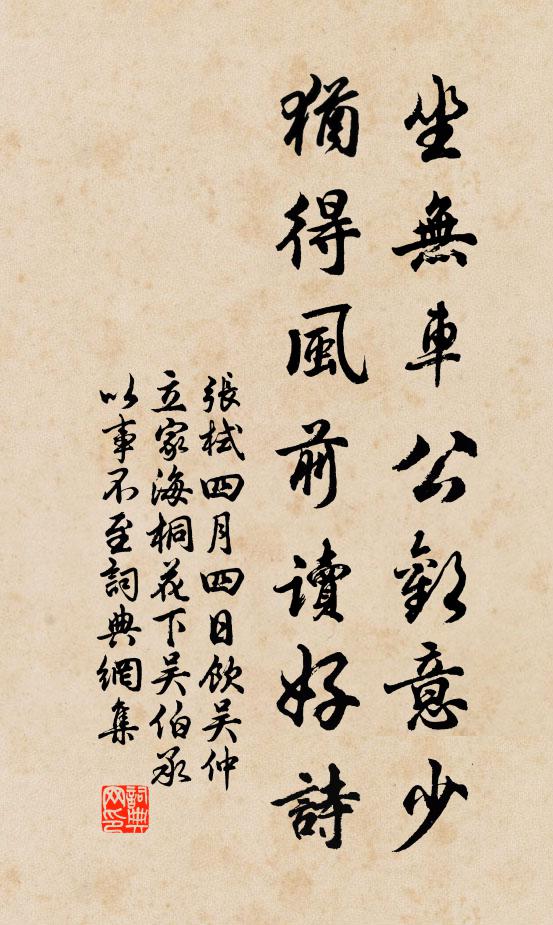 坐無車公歡意少
猶得風前讀好詩
張栻四月四日飲吳仲
立家海桐花下吳伯承
以事不至詞典網集
詞典網印